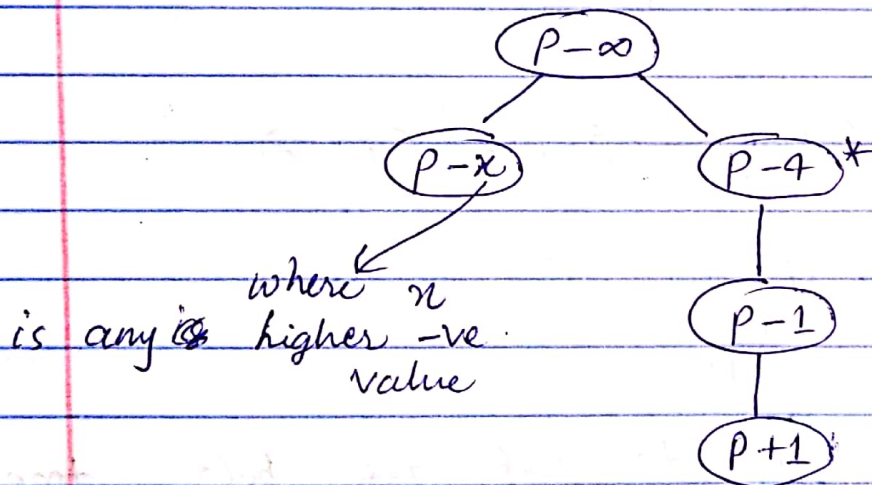 P-∞
P-x
P-4 *
where x
is any higher -ve
value
P-1
P+1